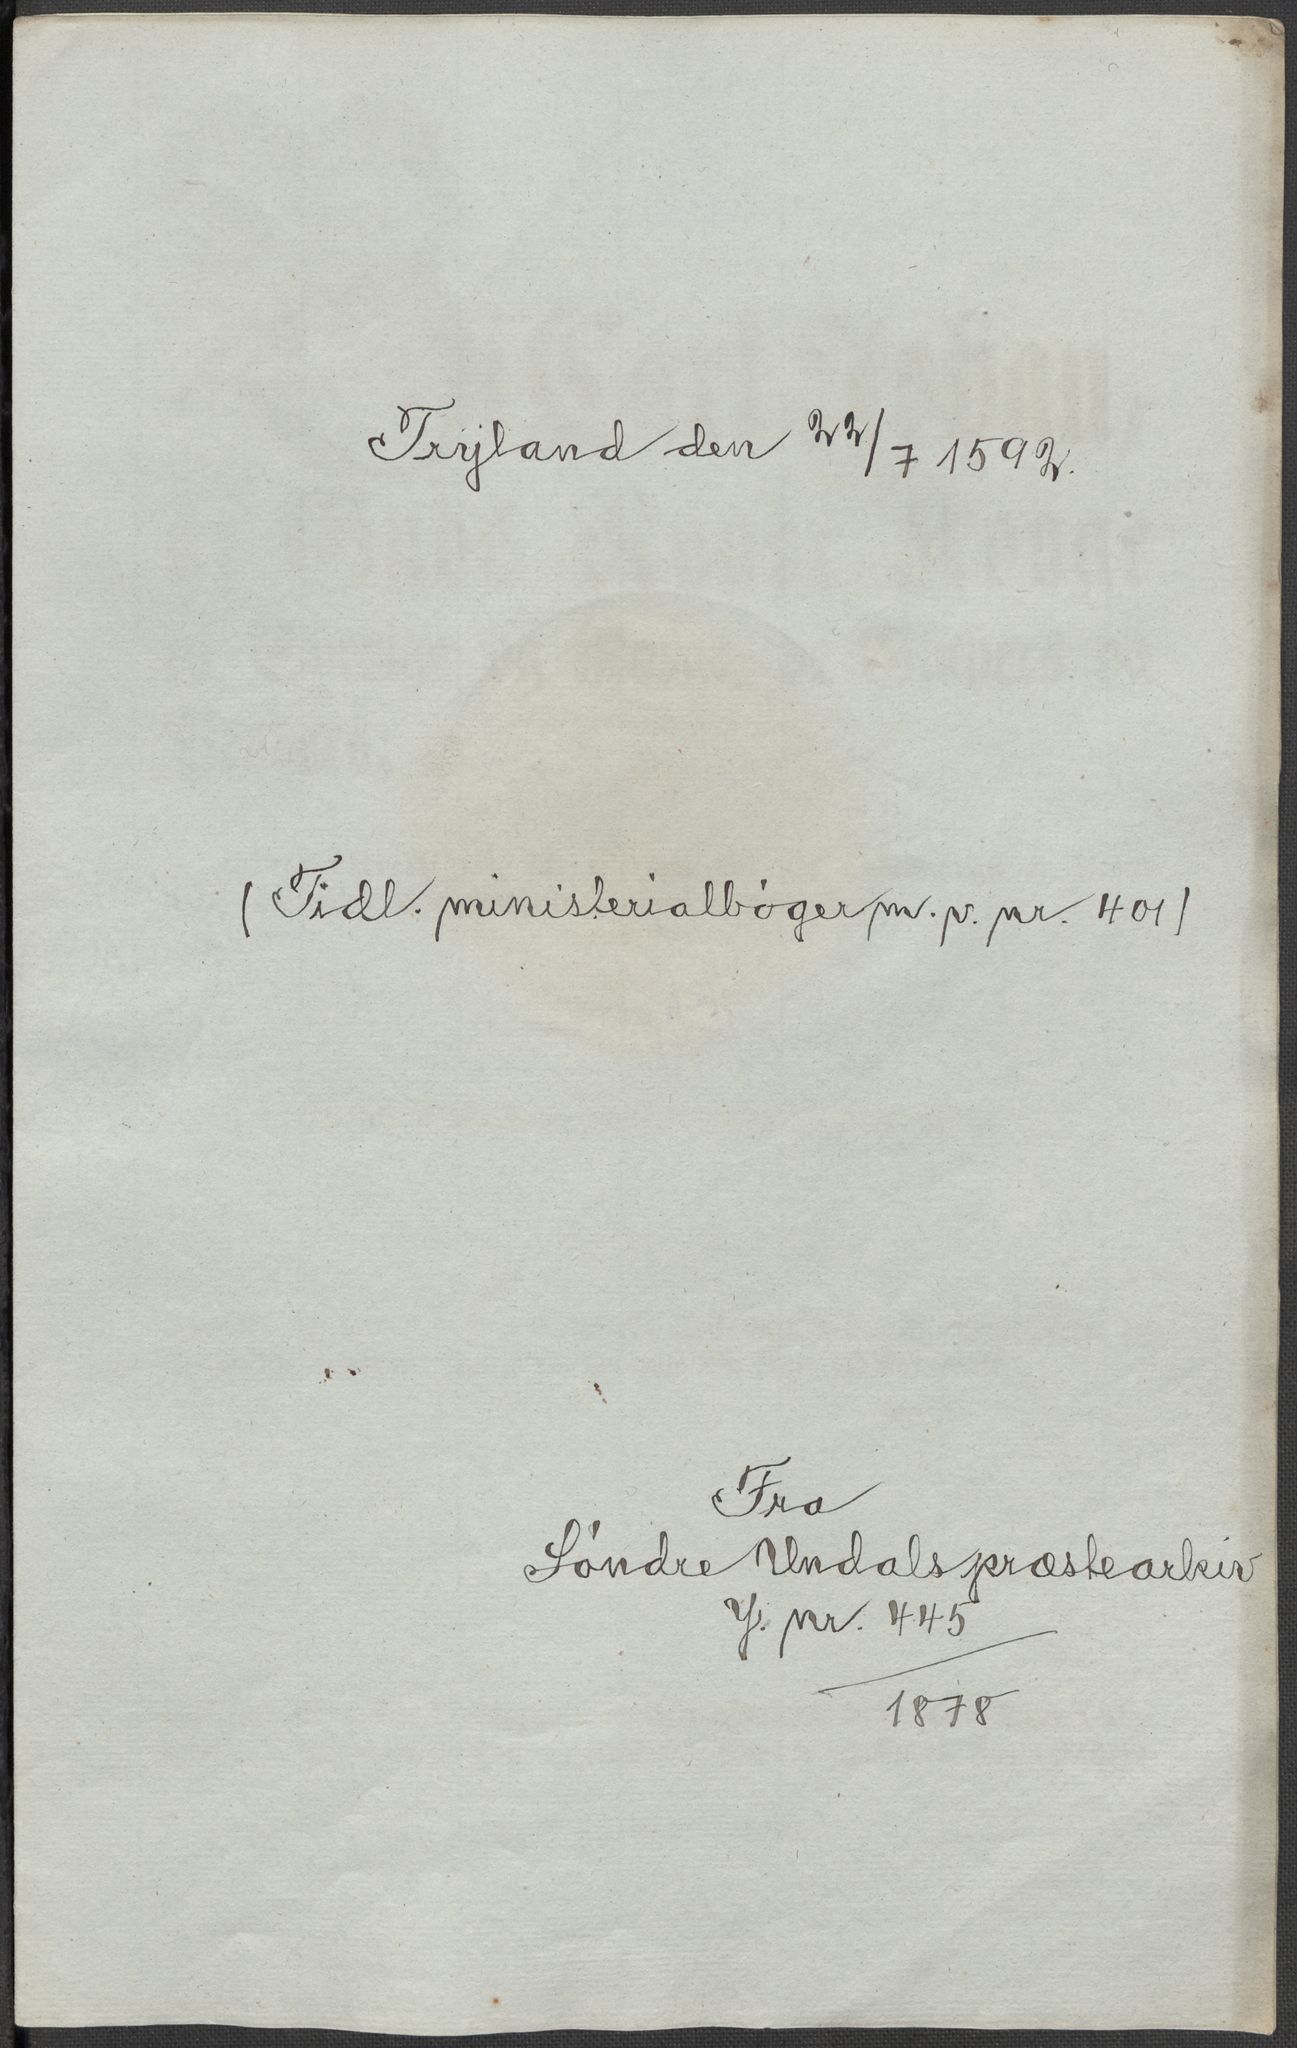 Trÿland den 22/7 1592.
(Tidl. ministerialbóger m. v. nr. 401)
Fra
Sóndre Undals præstearkiv
J. nr. 445
1878